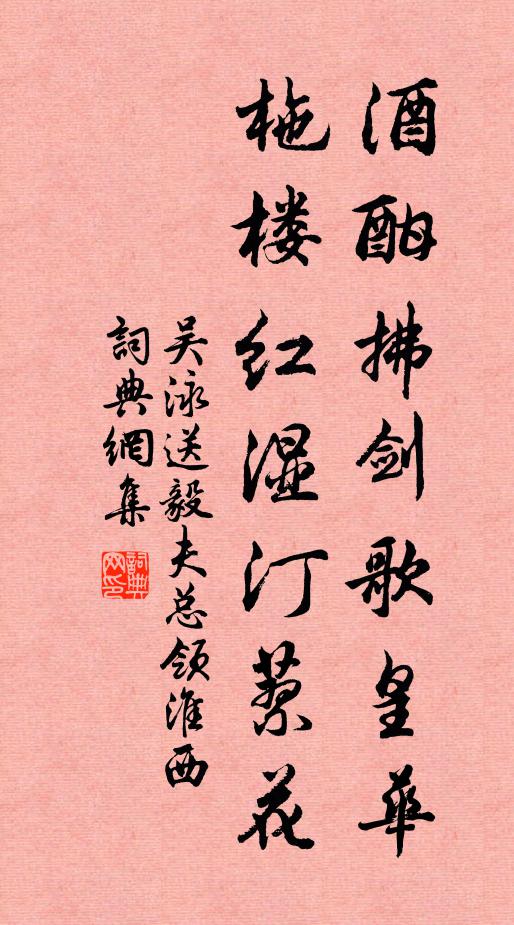 酒酣拂剑歌皇華
柂楼红湿汀蓼花
吴泳送毅夫总领淮西
詞典網集
詞典网印